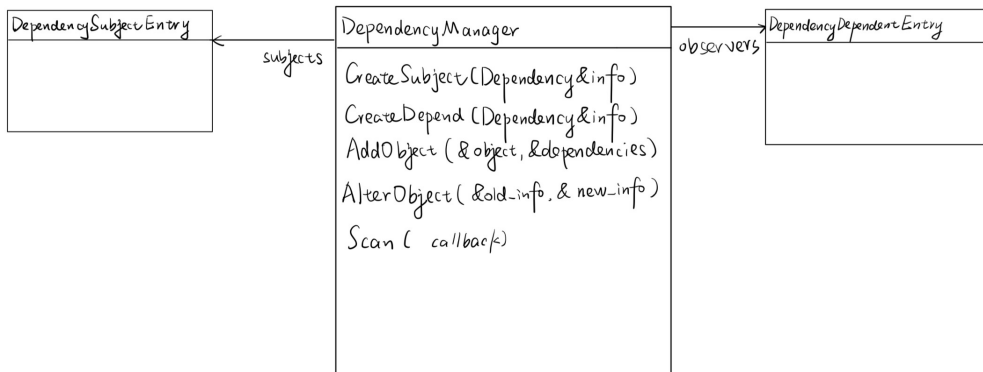 DependencySubjectEntry
subjects
DependencyManager
CreateSubject(Dependency&info)
CreateDepend(Dependency&info)
AddObject(&object,&dependencies)
AlterObject(&old_info,&new_info)
Scan( callback)
observers
DependencyDependentEntry